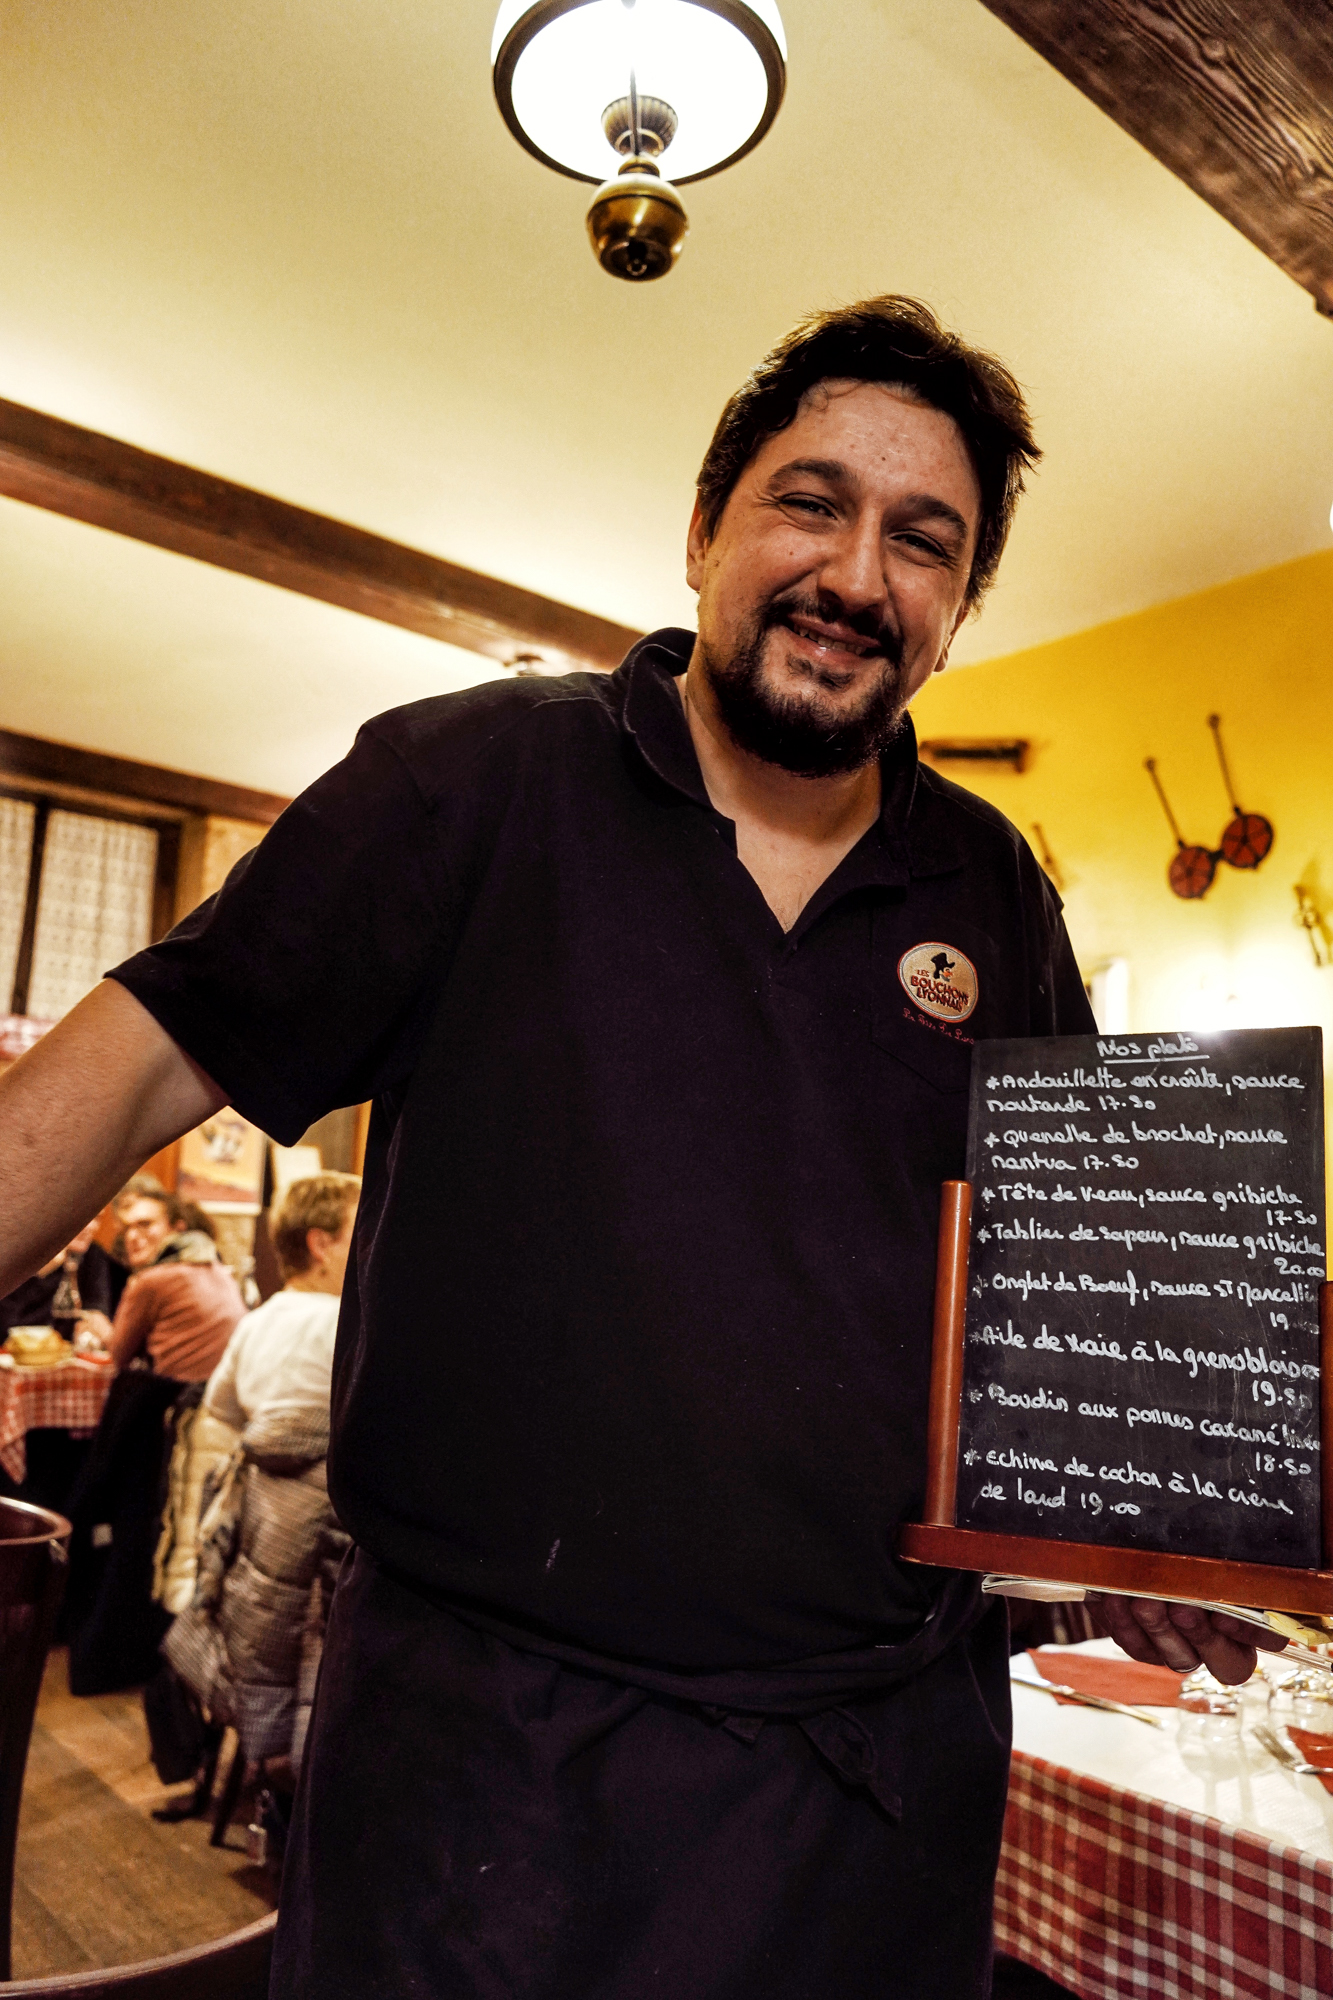 LES
BOUCHONS
LYONNAIS
Nos plats
*Andouillette en croûte, sauce
moutarde 17.50
* Quenelle de brochet, sauce
nantua 17.50
* Tête de veau, sauce gribiche
17.50
* Tablier de sapeur, sauce gribiche
20.00
* Onglet de Boeuf, sauce St Marcellin
19.
*Aile de raie à la grenobloise
19.50
* Boudin aux pommes caramélisée
18.50
* Echine de cochon à la crème
de lard 19.00